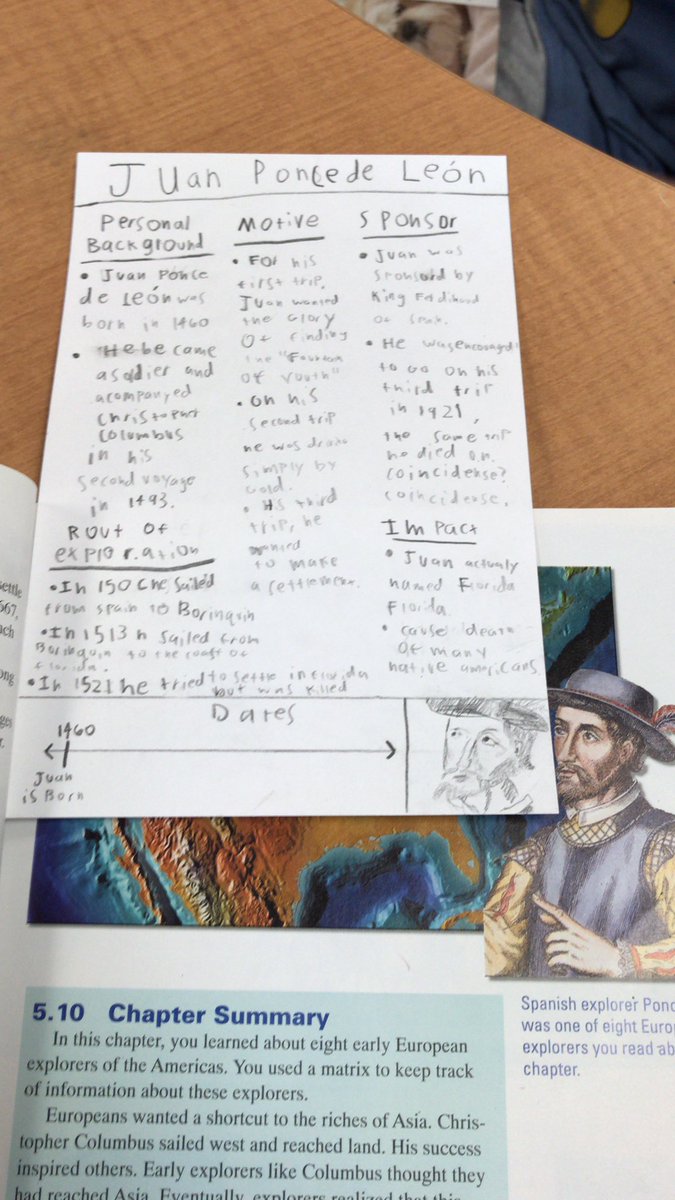 Juan Ponce de León
Personal
Background
• Juan Ponce
de León was
born in 1460
• He became
a soldier and
acompanyed
Christopher
Columbus
in his
second voyage
in 1493.
Motive
• For his
first trip,
Juan wanted
the glory
of finding
the "Fountain
of Youth"
• On his
second trip
he was
simply by
gold.
• His third
trip, he
wanted
to make
a settlement.
Sponsor
• Juan was
by
King
of
• He was
to go on his
third trip
in 1921,
the same trip
he died on.
coincidense?
coincidense.
Rout of
exploration
• In 150 he sailed
from Spain to Borinquin
• In 1513 h sailed from
Borinquin to the coast of
florida.
• In 1521 he tried to settle in florida
but was killed
Impact
• Juan actualy
named Florida
Florida.
• cause
of many
native americans
Dates
1460
Juan
is Born
ettle
67,
ach
ong
ges
r.
5.10 Chapter Summary
In this chapter, you learned about eight early European
explorers of the Americas. You used a matrix to keep track
of information about these explorers.
Europeans wanted a shortcut to the riches of Asia. Chris-
topher Columbus sailed west and reached land. His success
inspired others. Early explorers like Columbus thought they
had reached Asia. Eventually, explorers realized that this
Spanish explorer Ponc
was one of eight Euro
explorers you read ab
chapter.